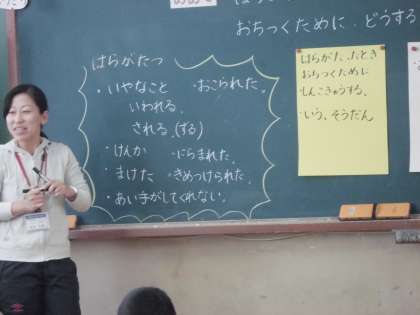 おちつくために、どうする
はらがたつ
・いやなこと ・おこられた。
いわれる。
される。(する)
・けんか ・にらまれた。
・まけた ・きめつけられた。
・あい手がしてくれない。
はらがたったとき
おちつくために
しんこきゅうする。
・いう、そうだん